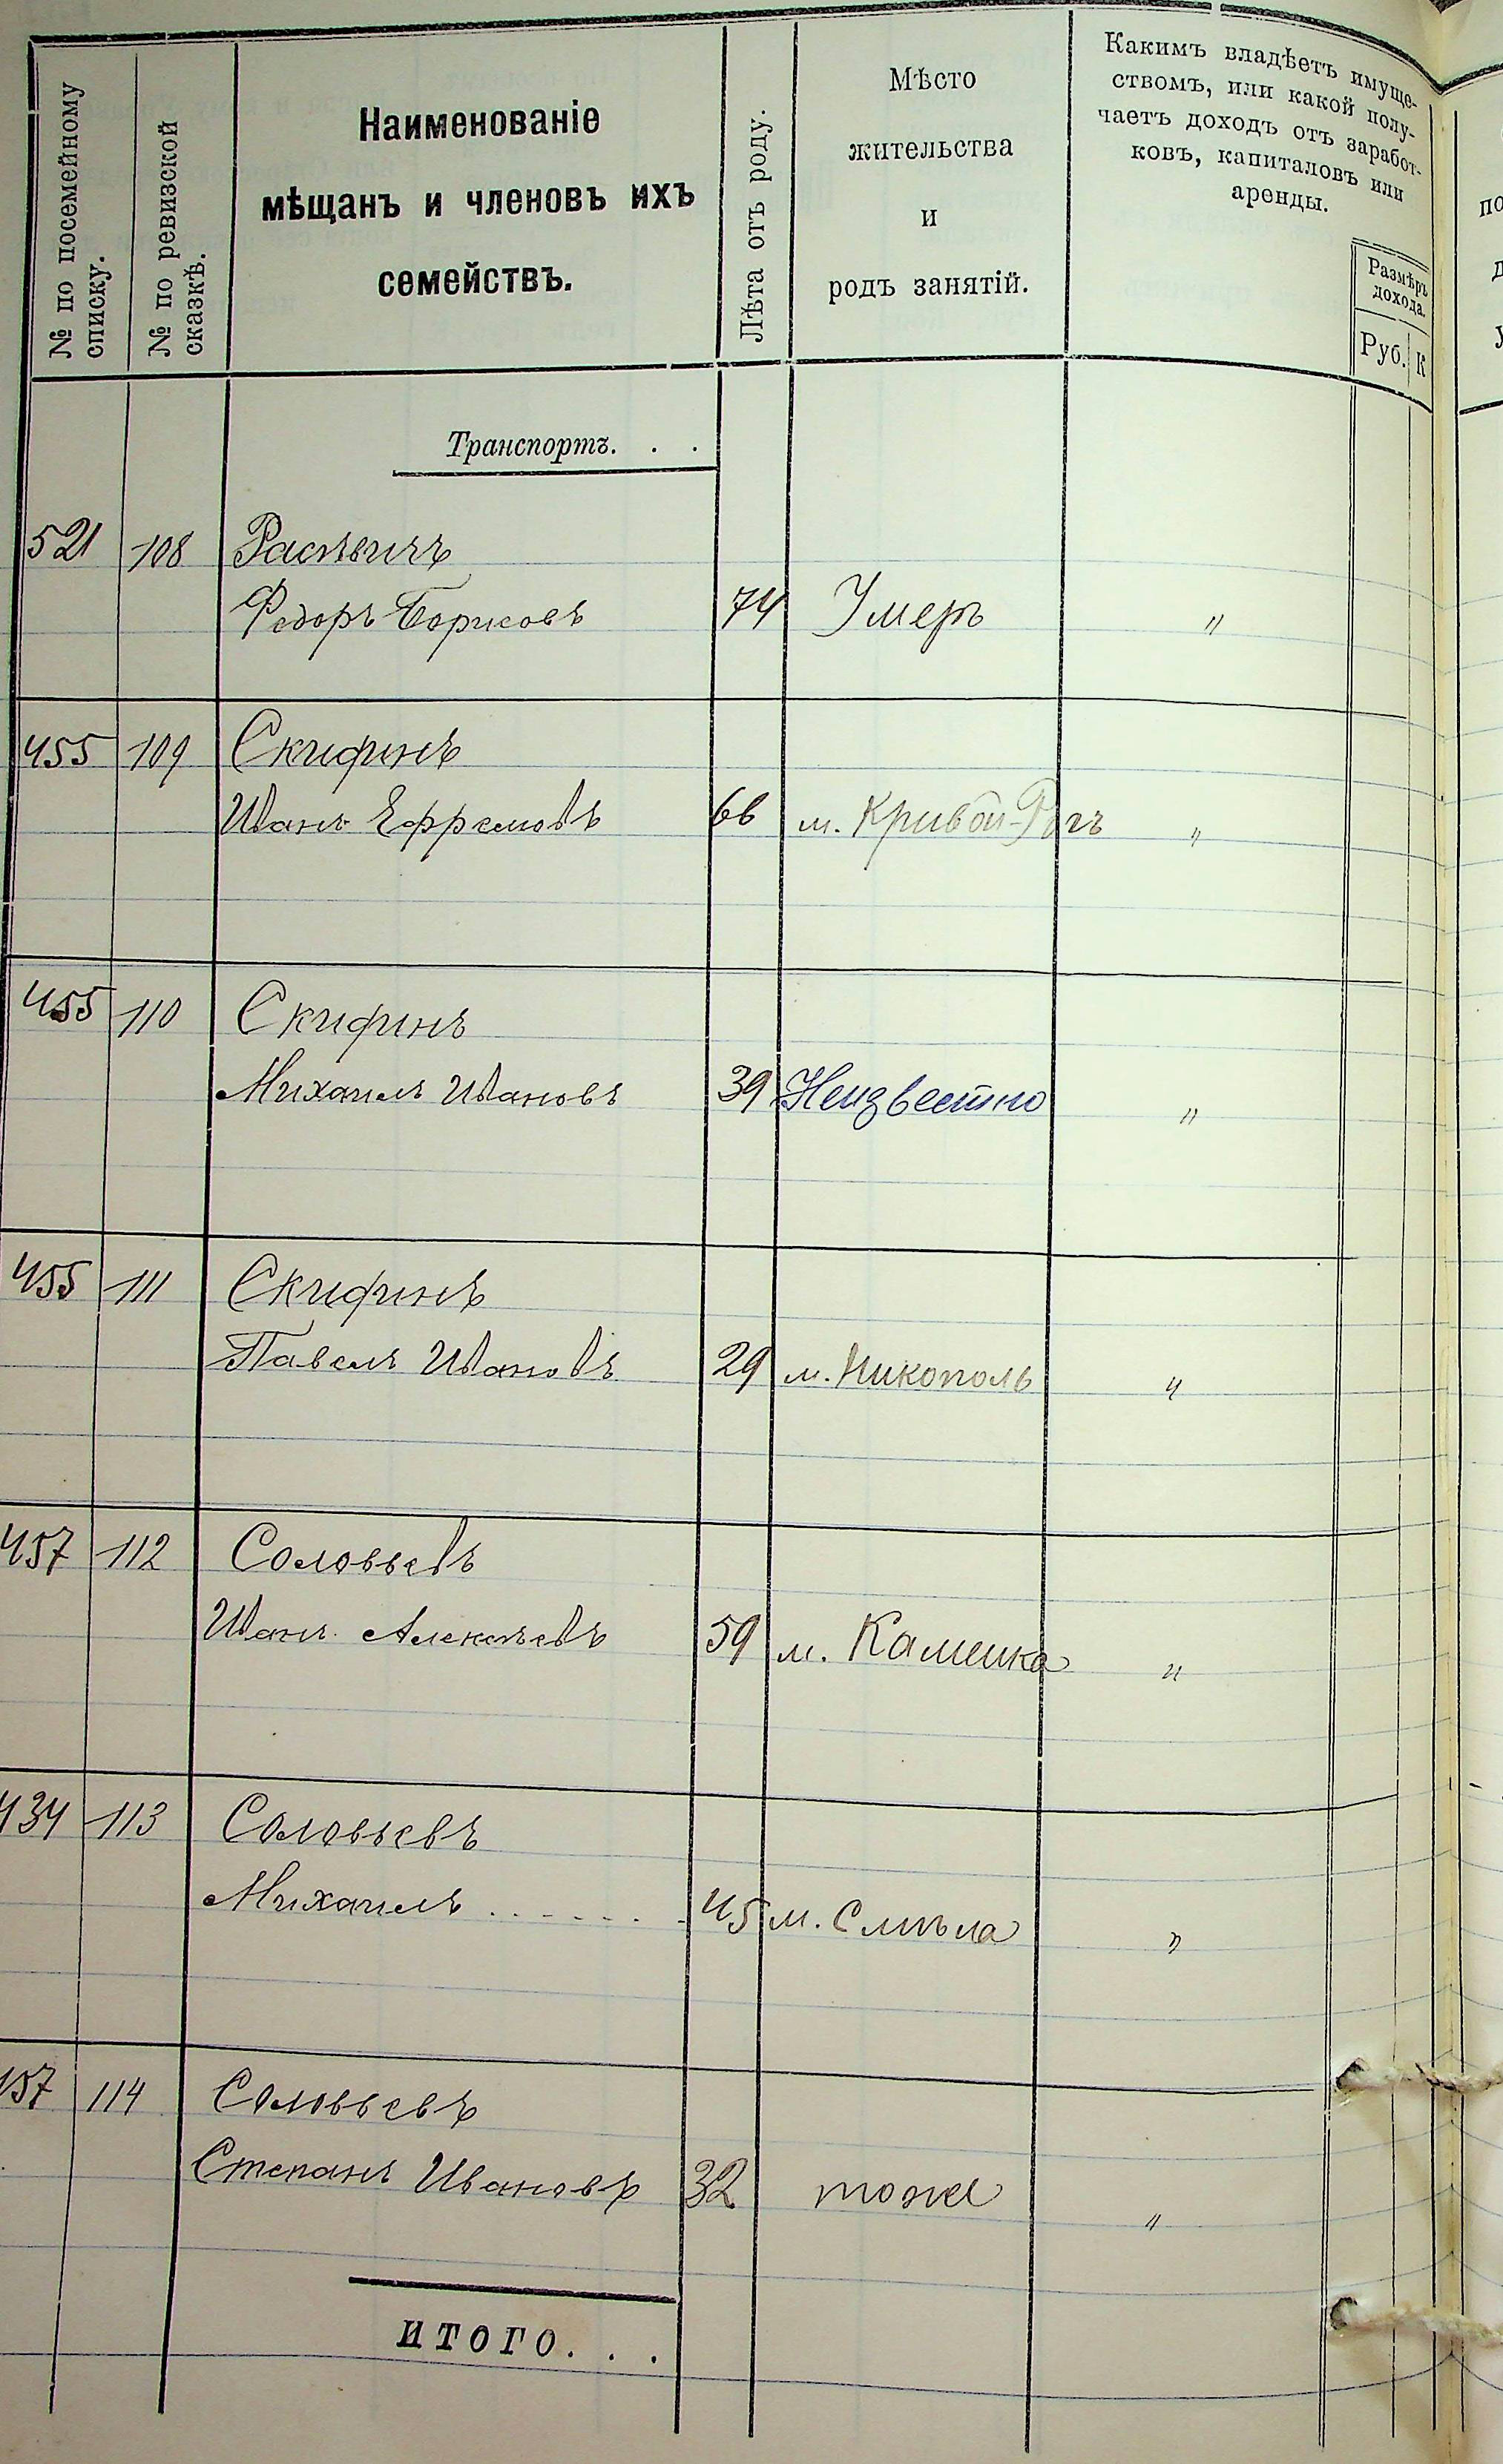 № по посемейному
списку.
№ по ревизской
сказкѣ.
Наименованіе
мѣщанъ и членовъ ихъ
семействъ.
Лѣта отъ роду.
Мѣсто
жительства
и
родъ занятій.
Какимъ владѣетъ имуще-
ствомъ, или какой полу-
чаетъ доходъ отъ заработ-
ковъ, капиталовъ или
аренды.
Размѣръ
дохода.
Руб. К
Транспортъ. . .
521 108
Федоръ Борисовъ 74 Умеръ "
455 109 Скифинъ
Иванъ Ефремовъ 66 м. Кривой-Рогъ "
455 110 Скифинъ
Михаилъ Ивановъ 39 Неизвестно "
455 111 Скифинъ
Павелъ Ивановъ 29 м. Никополь "
457 112 Соловьевъ
Иванъ Алексѣевъ 59 м. Каменка "
434 113 Соловьевъ
Михаилъ . . . . . . . 45 м. Смѣла "
457 114 Соловьевъ
Степанъ Ивановъ 32 тоже "
ИТОГО. . .